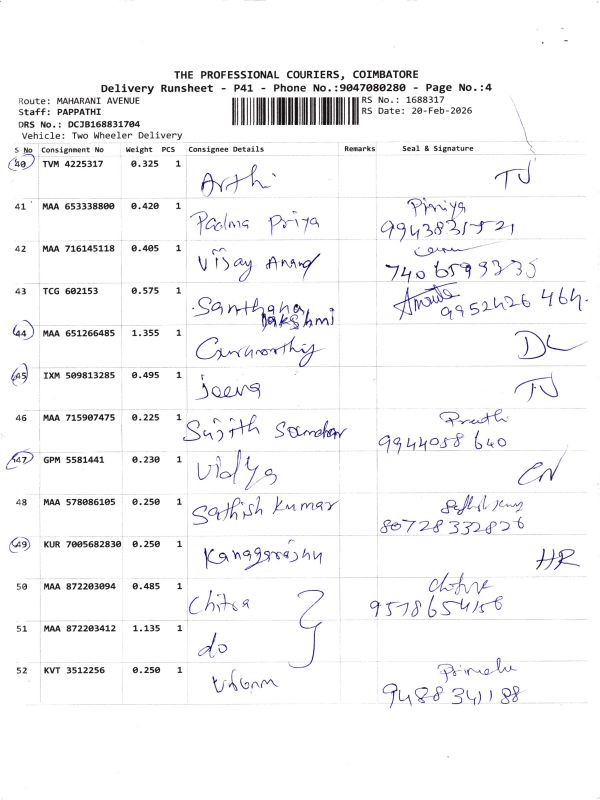 THE PROFESSIONAL COURIERS, COIMBATORE
Delivery Runsheet - P41 - Phone No.:9047080280 - Page No.:4
Route: MAHARANI AVENUE
Staff: PAPPATHI
DRS No.: DCJB168831704
Vehicle: Two Wheeler Delivery
RS No.: 1688317
RS Date: 20-Feb-2026
S No Consignment No Weight PCS Consignee Details Remarks Seal & Signature
40 TVM 4225317 0.325 1 Arthi
41 MAA 653338800 0.420 1 Padma Priya
42 MAA 716145118 0.405 1 Vijay Anand
43 TCG 602153 0.575 1 Santhana lakshmi 9952426464
44 MAA 651266485 1.355 1 DL
45 IXM 509813285 0.495 1 Jeeva
46 MAA 715907475 0.225 1 Sujith 9944058640
47 GPM 5581441 0.230 1 Vidya
48 MAA 578086105 0.250 1 Sathish Kumar
49 KUR 7005682830 0.250 1 Kanagaraju HR
50 MAA 872203094 0.485 1 Chitra
51 MAA 872203412 1.135 1 do
52 KVT 3512256 0.250 1 9488341188